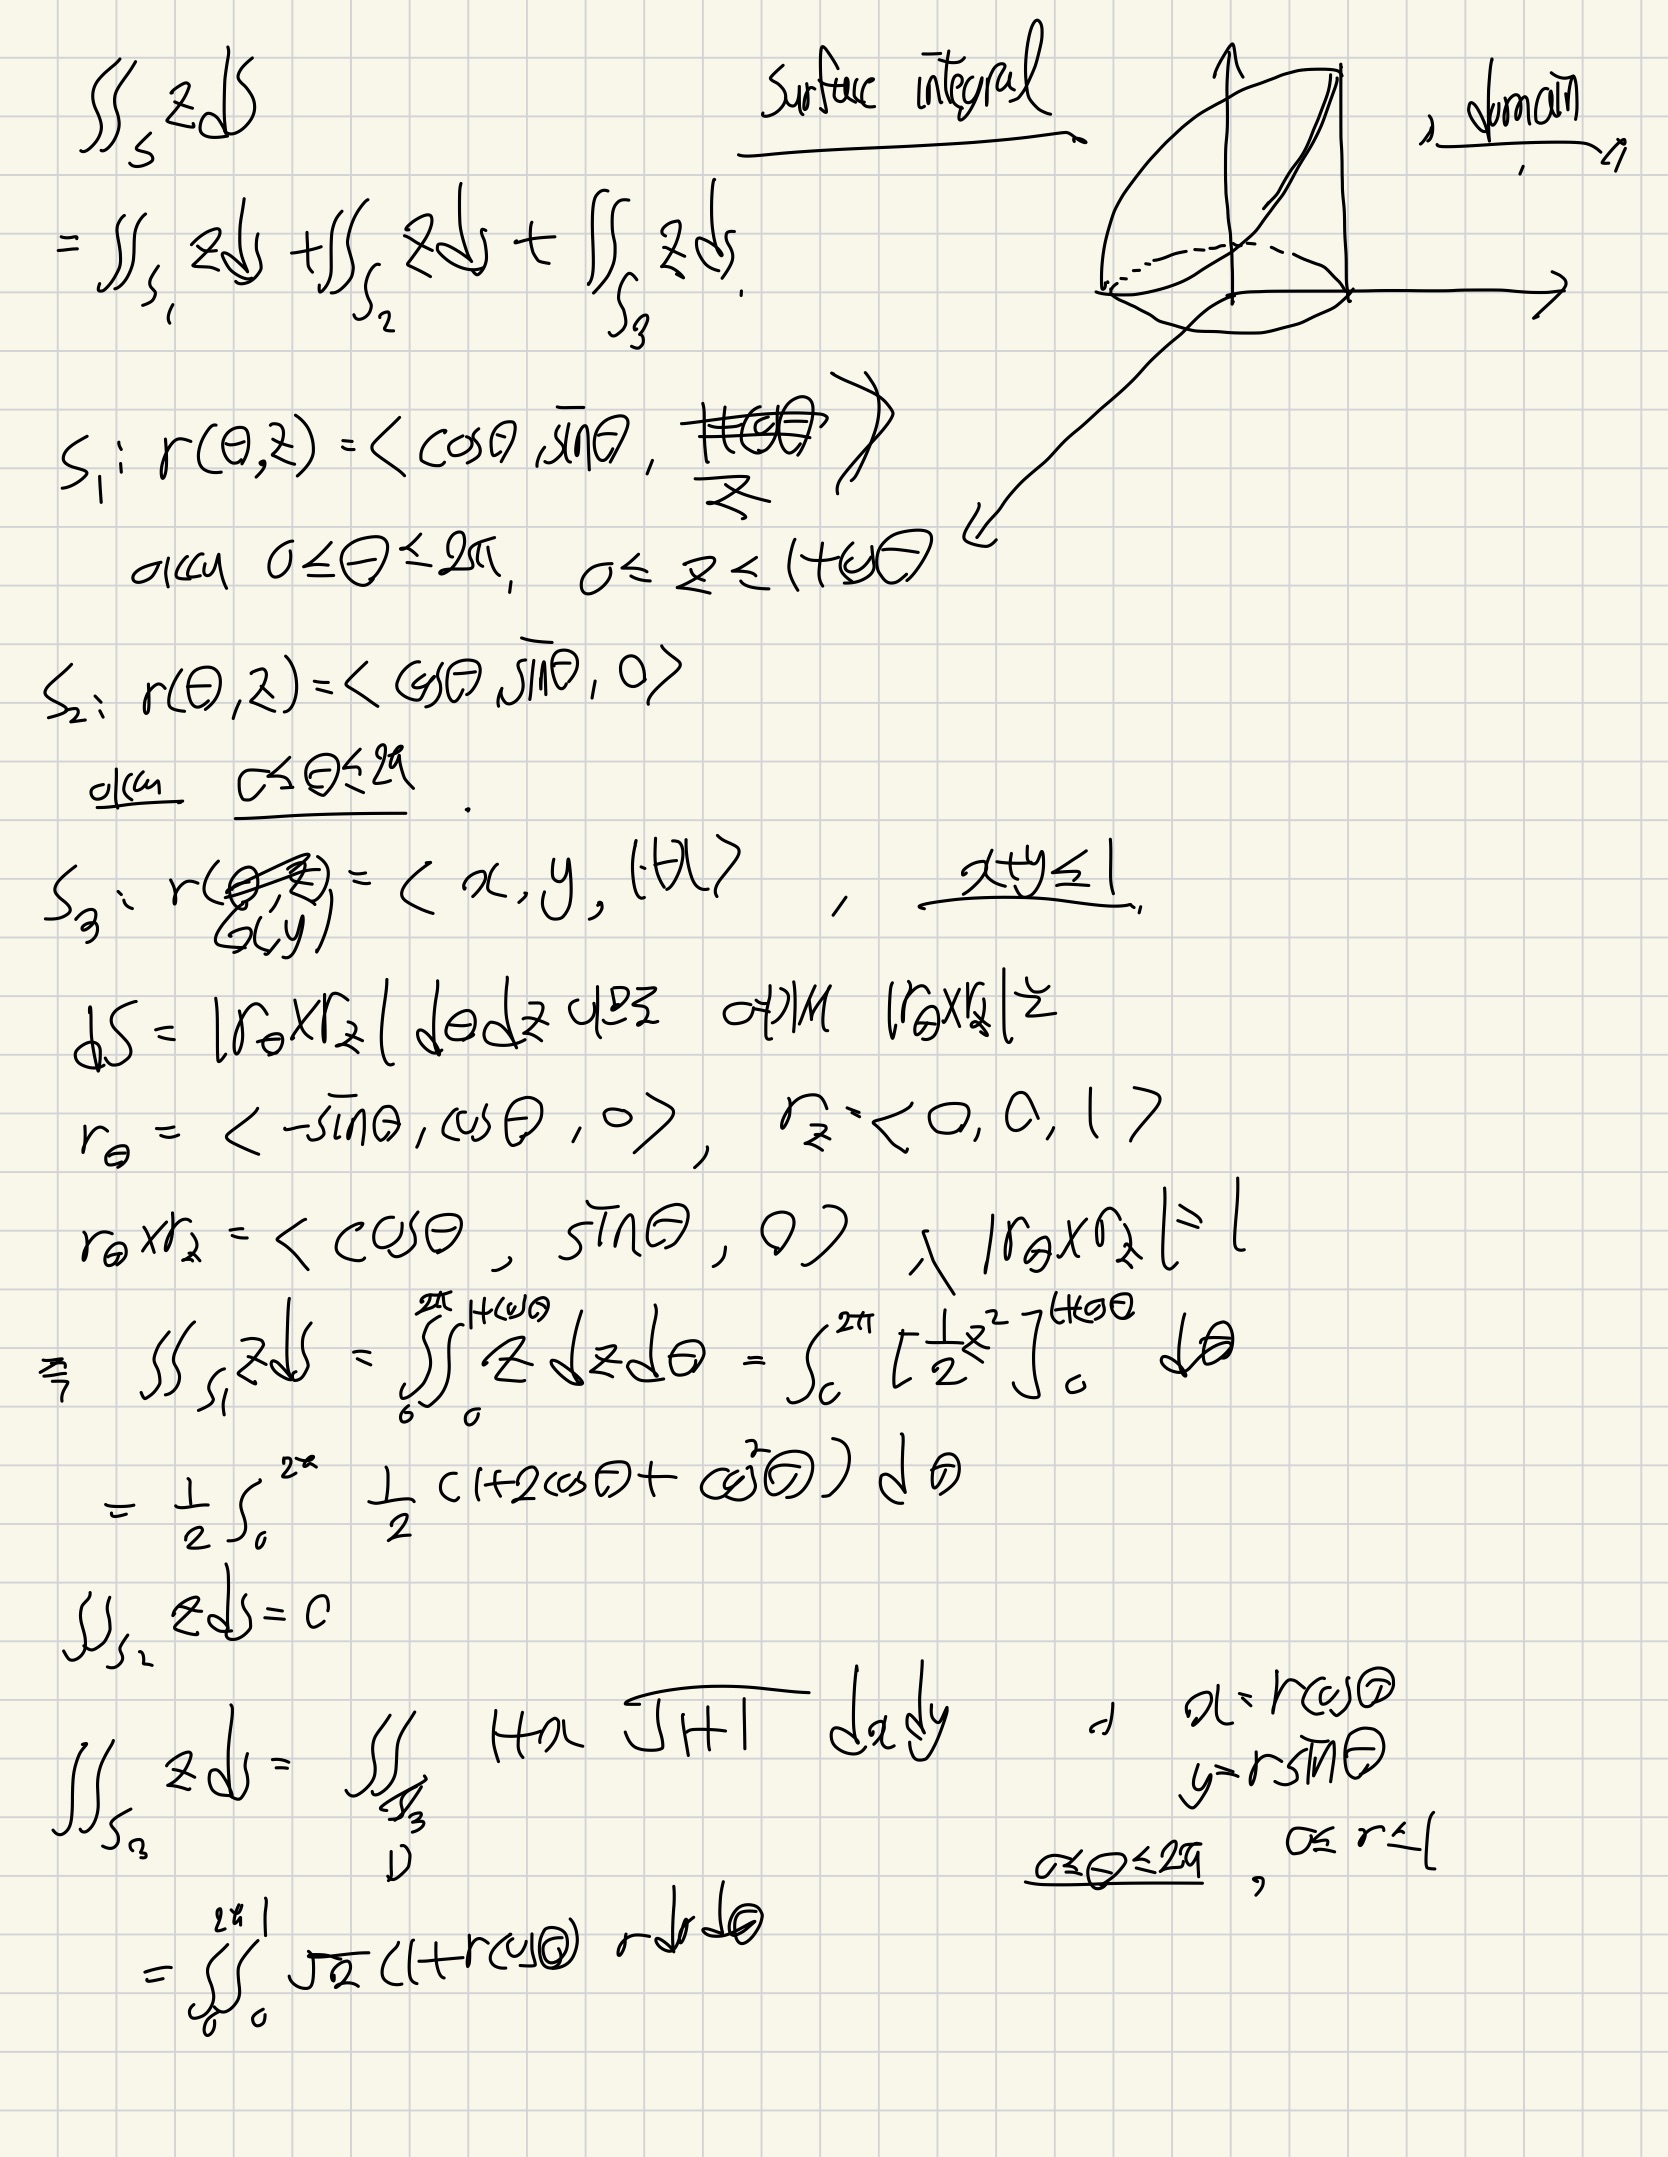 ∬_S z dS
surface integral
, domain
= ∬_{S_1} z ds + ∬_{S_2} z ds + ∬_{S_3} z ds.
S_1 : r(θ,z) = < cosθ, sinθ, z >
0 ≤ θ ≤ 2π, 0 ≤ z ≤ 1+cosθ
S_2 : r(θ,z) = < cosθ, sinθ, 0 >
0 ≤ θ ≤ 2π .
S_3 : r(x,y) = < x, y, 1+x > , x+y ≤ 1.
dS = |r_θ × r_z| dθ dz |r_θ × r_z|
r_θ = < -sinθ, cosθ, 0 >, r_z = < 0, 0, 1 >
r_θ × r_z = < cosθ, sinθ, 0 >, |r_θ × r_z| = 1
∬_{S_1} z ds = ∫_0^{2π} ∫_0^{1+cosθ} z dz dθ = ∫_0^{2π} [ 1/2 z² ]_0^{1+cosθ} dθ
= 1/2 ∫_0^{2π} 1/2 (1+2cosθ + cos²θ) dθ
∬_{S_2} z ds = 0
∬_{S_3} z ds = ∬_D 1+x √1+1 dx dy
x = rcosθ
y = rsinθ
0 ≤ θ ≤ 2π, 0 ≤ r ≤ 1
= ∫_0^{2π} ∫_0^1 √2 (1+rcosθ) r dr dθ